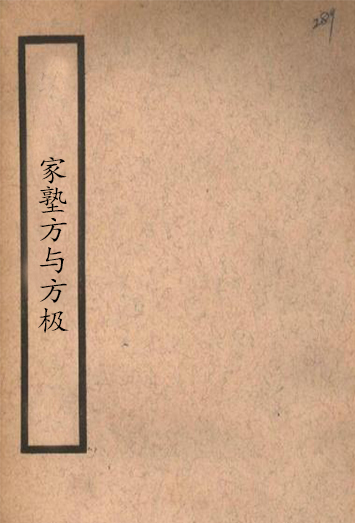 家塾方与方极
289